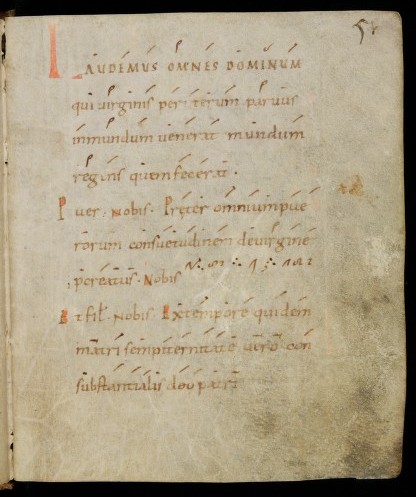 LAUDEMUS OMNES DOMINUM
qui virginis per uterum parvus
in mundum venerat mundum
regens quem fecerat.
Puer. Nobis. Pręter omnium pue
rorum consuetudinem de virgine
procreatus. Nobis
Et fil. Nobis. Ex tempore quidem
matri sempiternitate vero con
substantialis deo patri